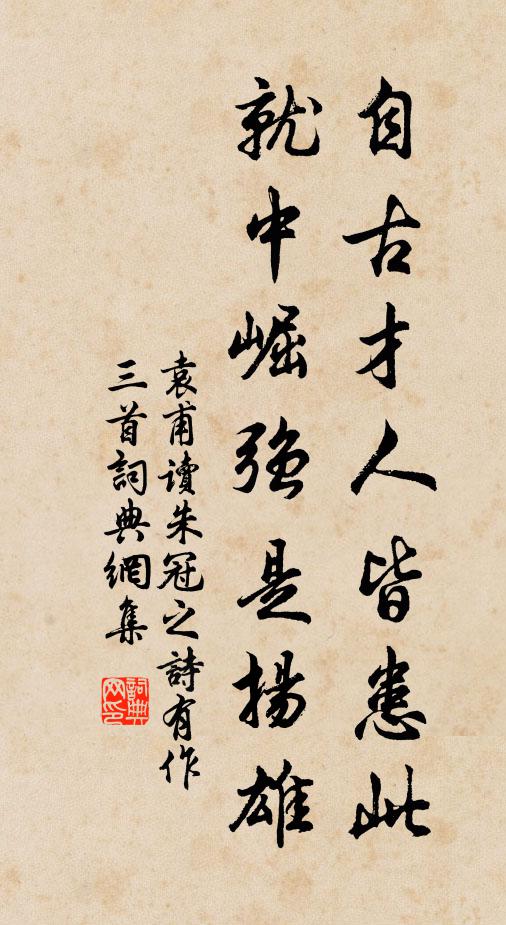 自古才人皆患此
就中崛強是揚雄
袁甫讀朱冠之詩有作
三首詞典網集
詞典
网印